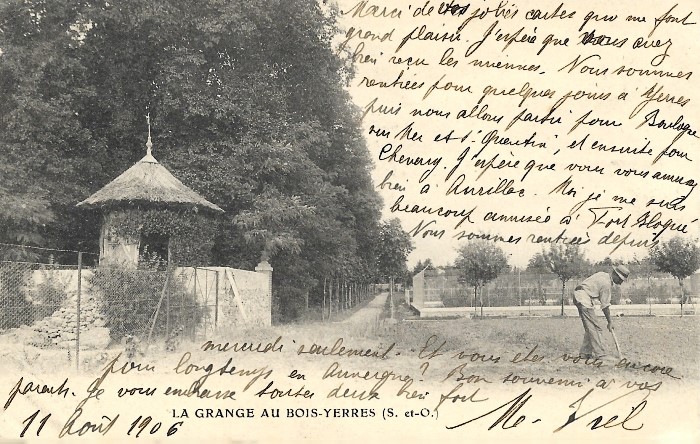 Merci de vos jolies cartes qui me font
grand plaisir. J'espère que vous avez
bien reçu les miennes. Nous sommes
rentrées pour quelques jours à Yerres
puis nous allons partir pour Boulogne
sur Mer et St Quentin, et ensuite pour
Chevany. J'espère que vous vous amusez
bien à Aurillac. Moi je me suis
beaucoup amusée à Fort Bloqué.
Nous sommes rentrées depuis
mercredi seulement. Et vous êtes vous encore
pour longtemps en Auvergne? Bon souvenir à vos
parents. Je vous embrasse toutes deux bien fort
LA GRANGE AU BOIS-YERRES (S. et-O.)
11 Août 1906